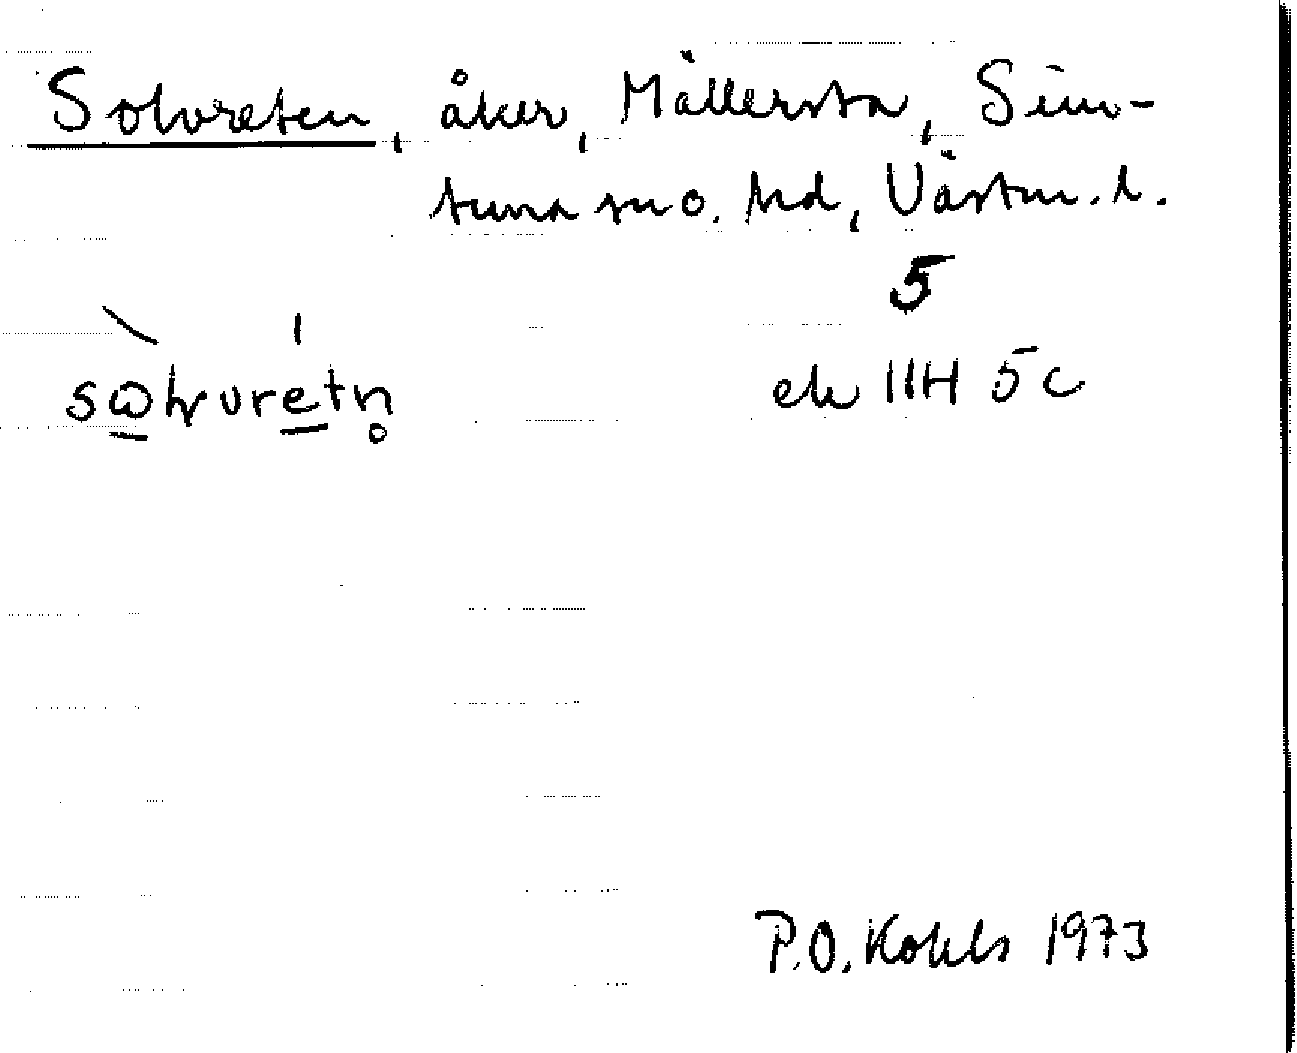 Solvreten, åker, Mällersta, Sim-
tuna sn o. hd, Västm. l.
5
ek 11H 5c
P.O. Kohls 1973